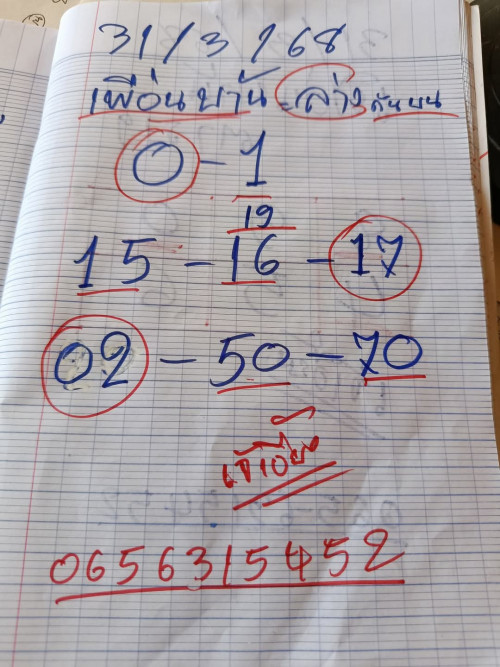 31/3/68
เพื่อนบ้าน ล่าง กันบน
0-1
19
15-16-17
02-50-70
0656315452